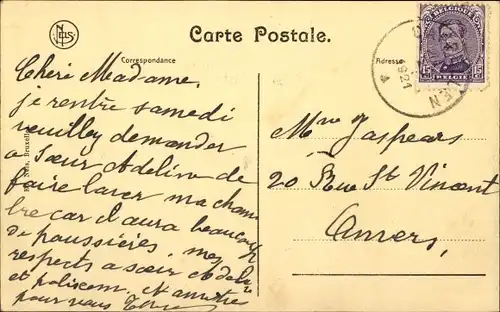 NELS
Carte Postale.
Correspondance
Adresse
BELGIQUE
15 15
BELGIE
1921
4
Chère Madame,
je rentre samedi
veuillez demander
a Sœur Adeline de
faire laver ma cham
bre car il aura beaucoup
de poussières. mes
respects a sœur Adeline
et
pour vous
Mme Jaspears
20 Rue St Vincent
Anvers,
Nels, Bruxelles